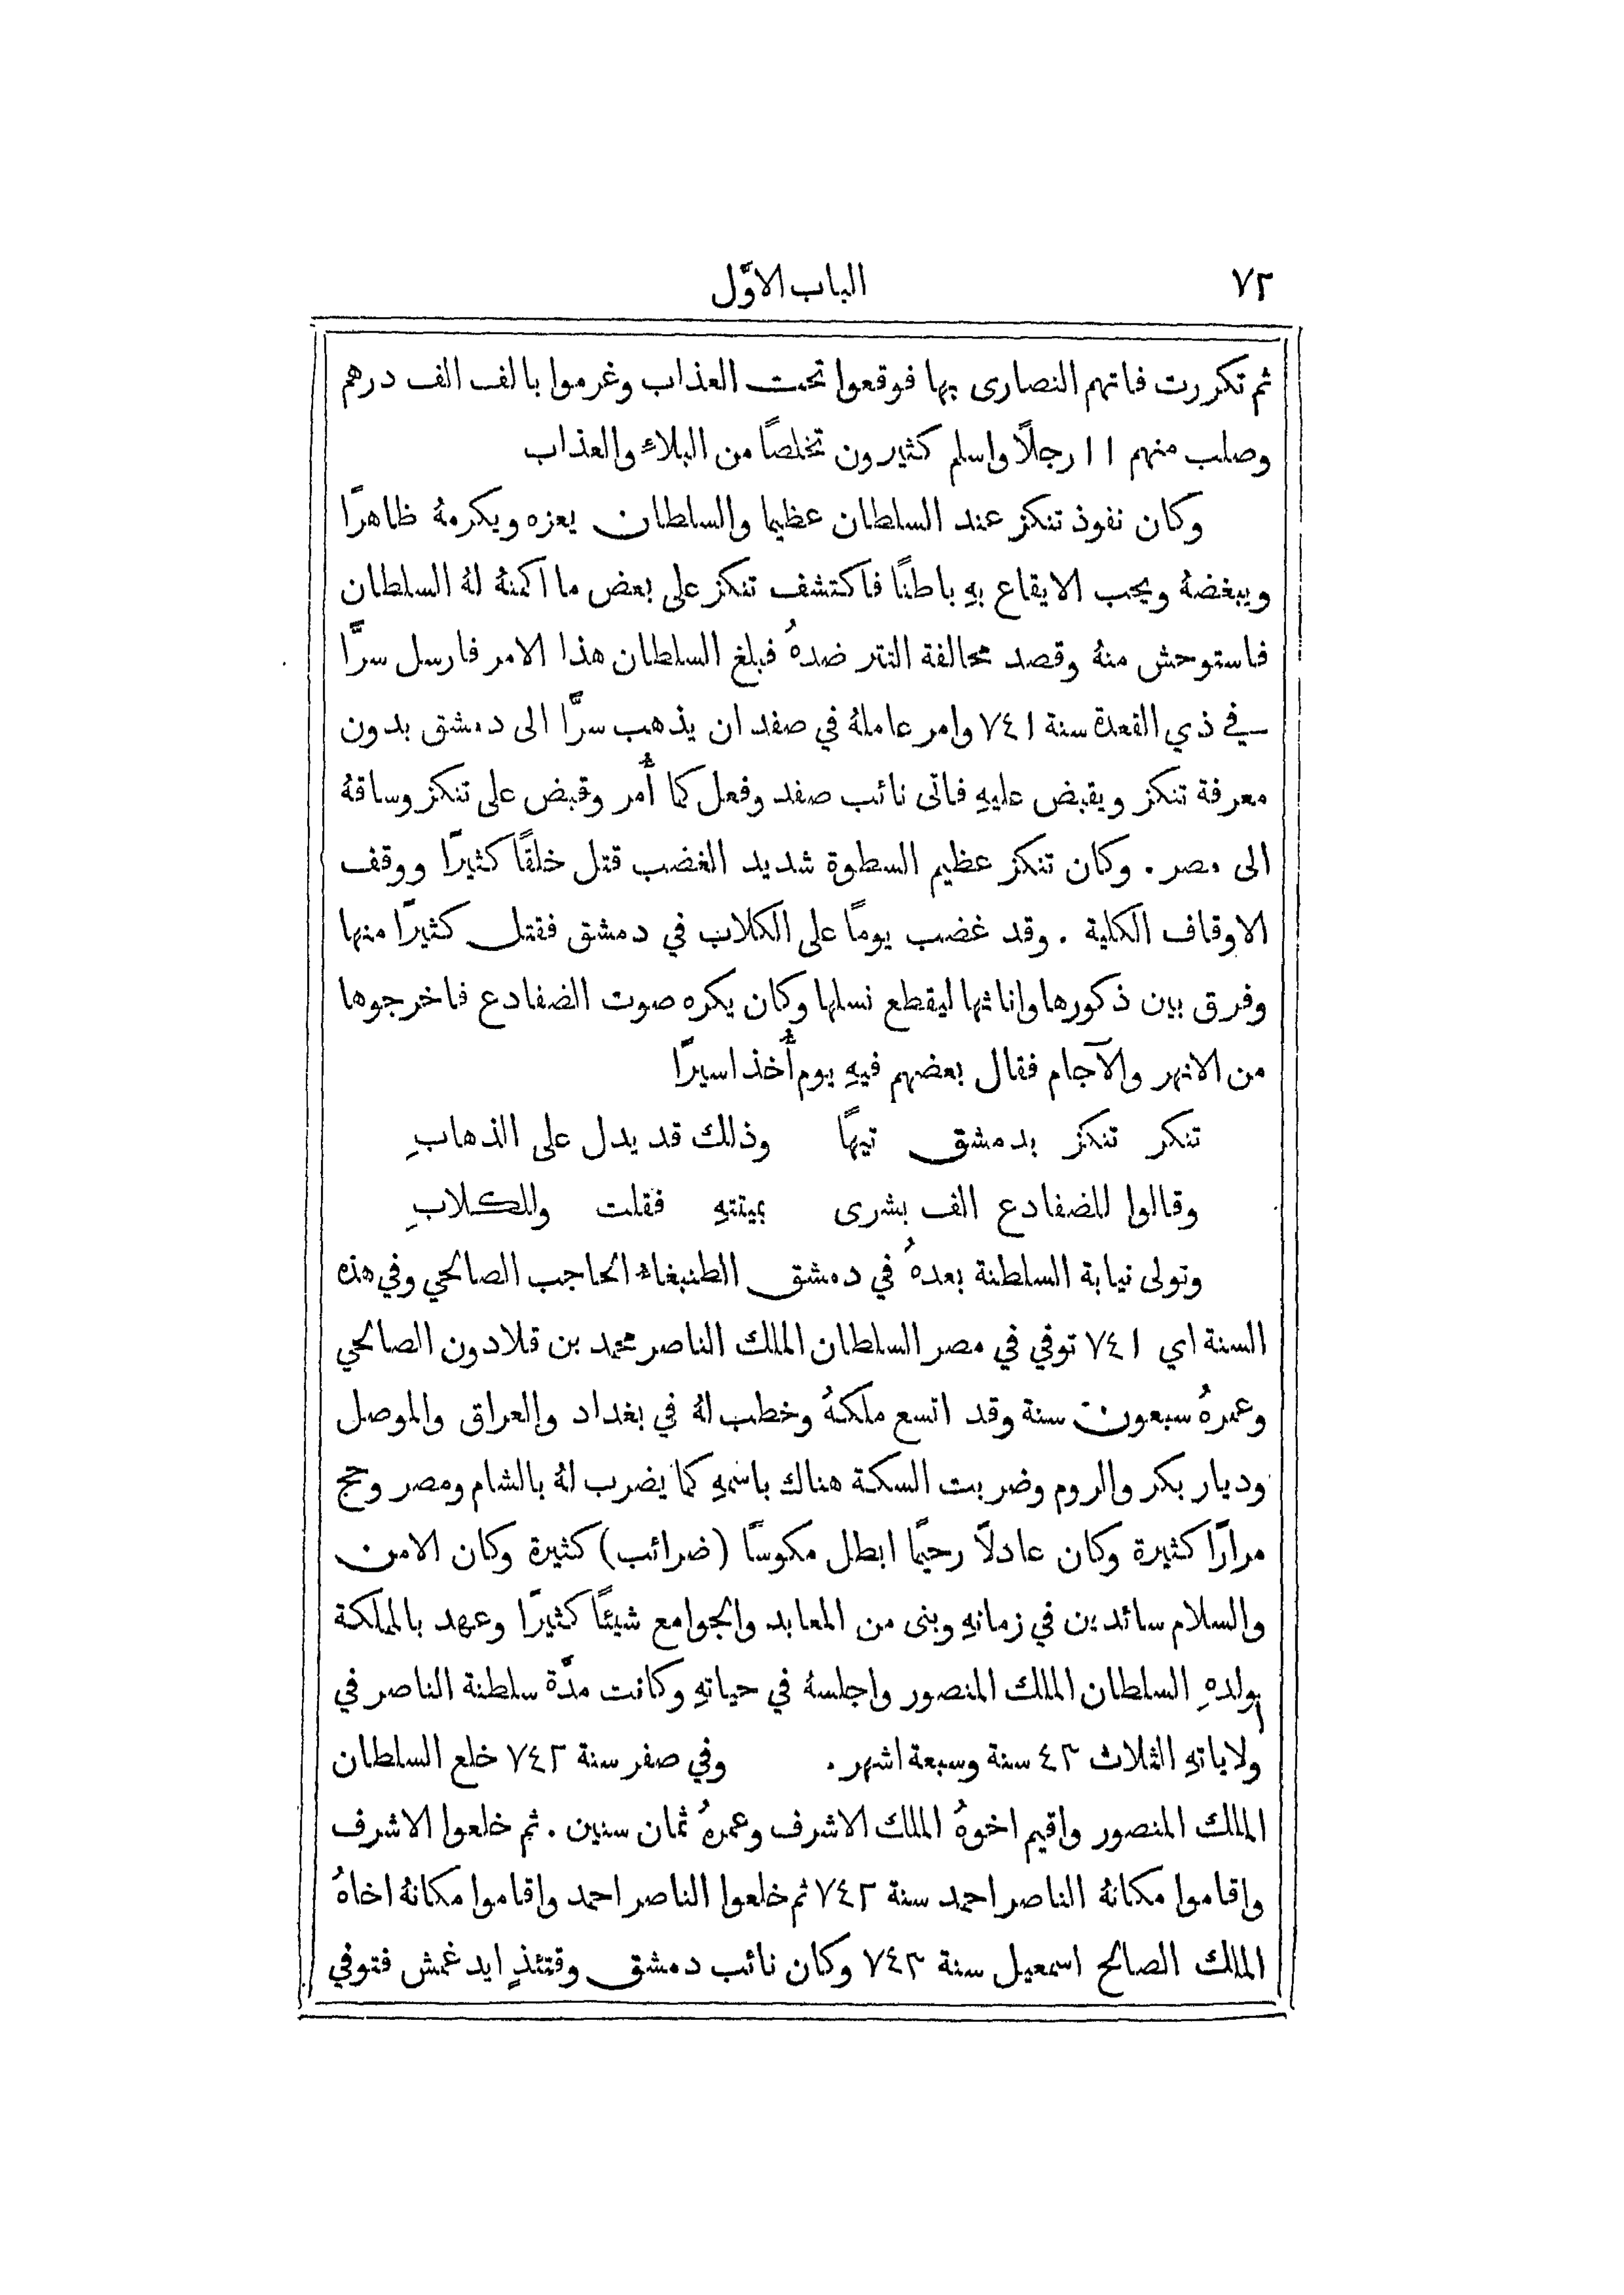 ٧٢ الباب الاوّل
ثم تكررت فاتهم النصارى بها فوقعوا تحت العذاب وغرموا بالف الف درهم
وصلب منهم ١١ رجلاً واسلم كثيرون تخلصاً من البلاء والعذاب
وكان نفوذ تنكز عند السلطان عظيما والسلطان يعزه ويكرمهُ ظاهرًا
ويبغضهُ ويحب الايقاع بهِ باطنًا فاكتشف تنكز على بعض ما اكمنهُ لهُ السلطان
فاستوحش منهُ وقصد محالفة التتر ضدهُ فبلغ السلطان هذا الامر فارسل سرًّا
في ذي القعدة سنة ٧٤١ وامر عاملهُ في صفد ان يذهب سرًّا الى دمشق بدون
معرفة تنكز ويقبض عليهِ فاتى نائب صفد وفعل كما أُمر وقبض على تنكز وساقهُ
الى مصر . وكان تنكز عظيم السطوة شديد الغضب قتل خلقًا كثيرًا ووقف
الاوقاف الكلية . وقد غضب يومًا على الكلاب في دمشق فقتل كثيرًا منها
وفرق بين ذكورها واناثها ليقطع نسلها وكان يكره صوت الضفادع فاخرجوها
من الانهر والآجام فقال بعضهم فيهِ يوم أُخذ اسيرًا
تنكر تنكز بدمشق تيهًا وذلك قد يدل على الذهابِ
وقالوا للضفادع الف بشرى بميتتهِ فقلت وللكلابِ
وتولى نيابة السلطنة بعدهُ في دمشق الطنبغاء الحاجب الصالحي وفي هذه
السنة اي ٧٤١ توفي في مصر السلطان الملك الناصر محمد بن قلادون الصالحي
وعمرهُ سبعون سنة وقد اتسع ملكهُ وخطب لهُ في بغداد والعراق والموصل
وديار بكر والروم وضربت السكة هناك باسمهِ كما يضرب لهُ بالشام ومصر وحج
مرارًا كثيرة وكان عادلاً رحيمًا ابطل مكوسًا (ضرائب) كثيرة وكان الامن
والسلام سائدين في زمانهِ وبنى من المعابد والجوامع شيئًا كثيرًا وعهد بالمملكة
لولدهِ السلطان الملك المنصور واجلسهُ في حياتهِ وكانت مدّة سلطنة الناصر في
ولاياتهِ الثلاث ٤٣ سنة وسبعة اشهر . وفي صفر سنة ٧٤٢ خلع السلطان
الملك المنصور واقيم اخوهُ الملك الاشرف وعمرهُ ثمان سنين . ثم خلعوا الاشرف
واقاموا مكانهُ الناصر احمد سنة ٧٤٢ ثم خلعوا الناصر احمد واقاموا مكانهُ اخاهُ
الملك الصالح اسمعيل سنة ٧٤٣ وكان نائب دمشق وقتئذٍ ايدغمش فتوفي